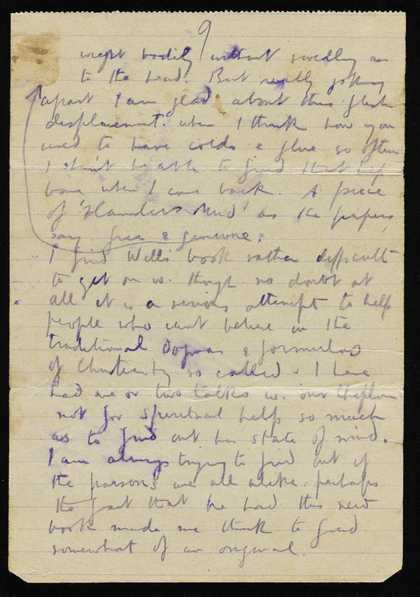 9
wept bodily without swedling in
to the head. But really joking
apart I am glad about this
displacement. When I think how you
used to have colds & flue so often
I shan't be able to find that
bone when I come back. A piece
of 'Flanders Mud' as the papers
say free & generous:
I find Wells' book rather difficult
to get on w. though no doubt at
all it is a serious attempt to help
people who can't believe in the
traditional Dogmas & formulas
of Christianity so called. I have
had one or two talks w. our Chaplain
not for spiritual help so much
as to find out his state of mind.
I am always trying to find out if
the parsons are all alike. perhaps
the fact that he had this new
book made me think to find
somewhat of an original.